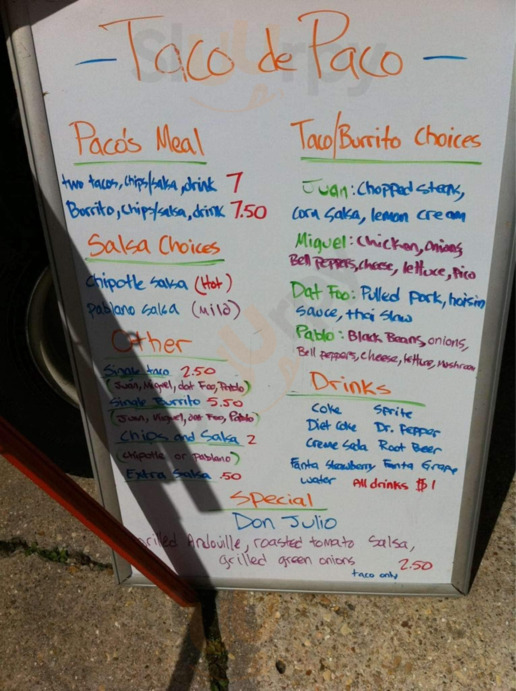 - Taco de Paco -
Paco's Meal
two tacos, chips/salsa, drink 7
Burrito, chips/salsa, drink 7.50
Salsa Choices
chipotle salsa (Hot)
pablano salsa (Mild)
Other
Single taco 2.50
(Juan, Miguel, dat Foo, Pablo)
Single Burrito 5.50
(Juan, Miguel, dat Foo, Pablo)
Chips and Salsa 2
(chipotle or pablano)
Extra Salsa .50
Taco/Burrito Choices
Juan: Chopped steak,
corn salsa, lemon cream
Miguel: Chicken, onions,
Bell Peppers, cheese, lettuce, Pico
Dat Foo: Pulled Pork, hoisin
sauce, thai slaw
Pablo: Black Beans, onions,
Bell peppers, cheese, lettuce, Mushroom
Drinks
Coke Sprite
Diet Coke Dr. Pepper
Creme Soda Root Beer
Fanta Strawberry Fanta Grape
water All drinks $1
Special
Don Julio
grilled Andouille, roasted tomato salsa,
grilled green onions 2.50
taco only